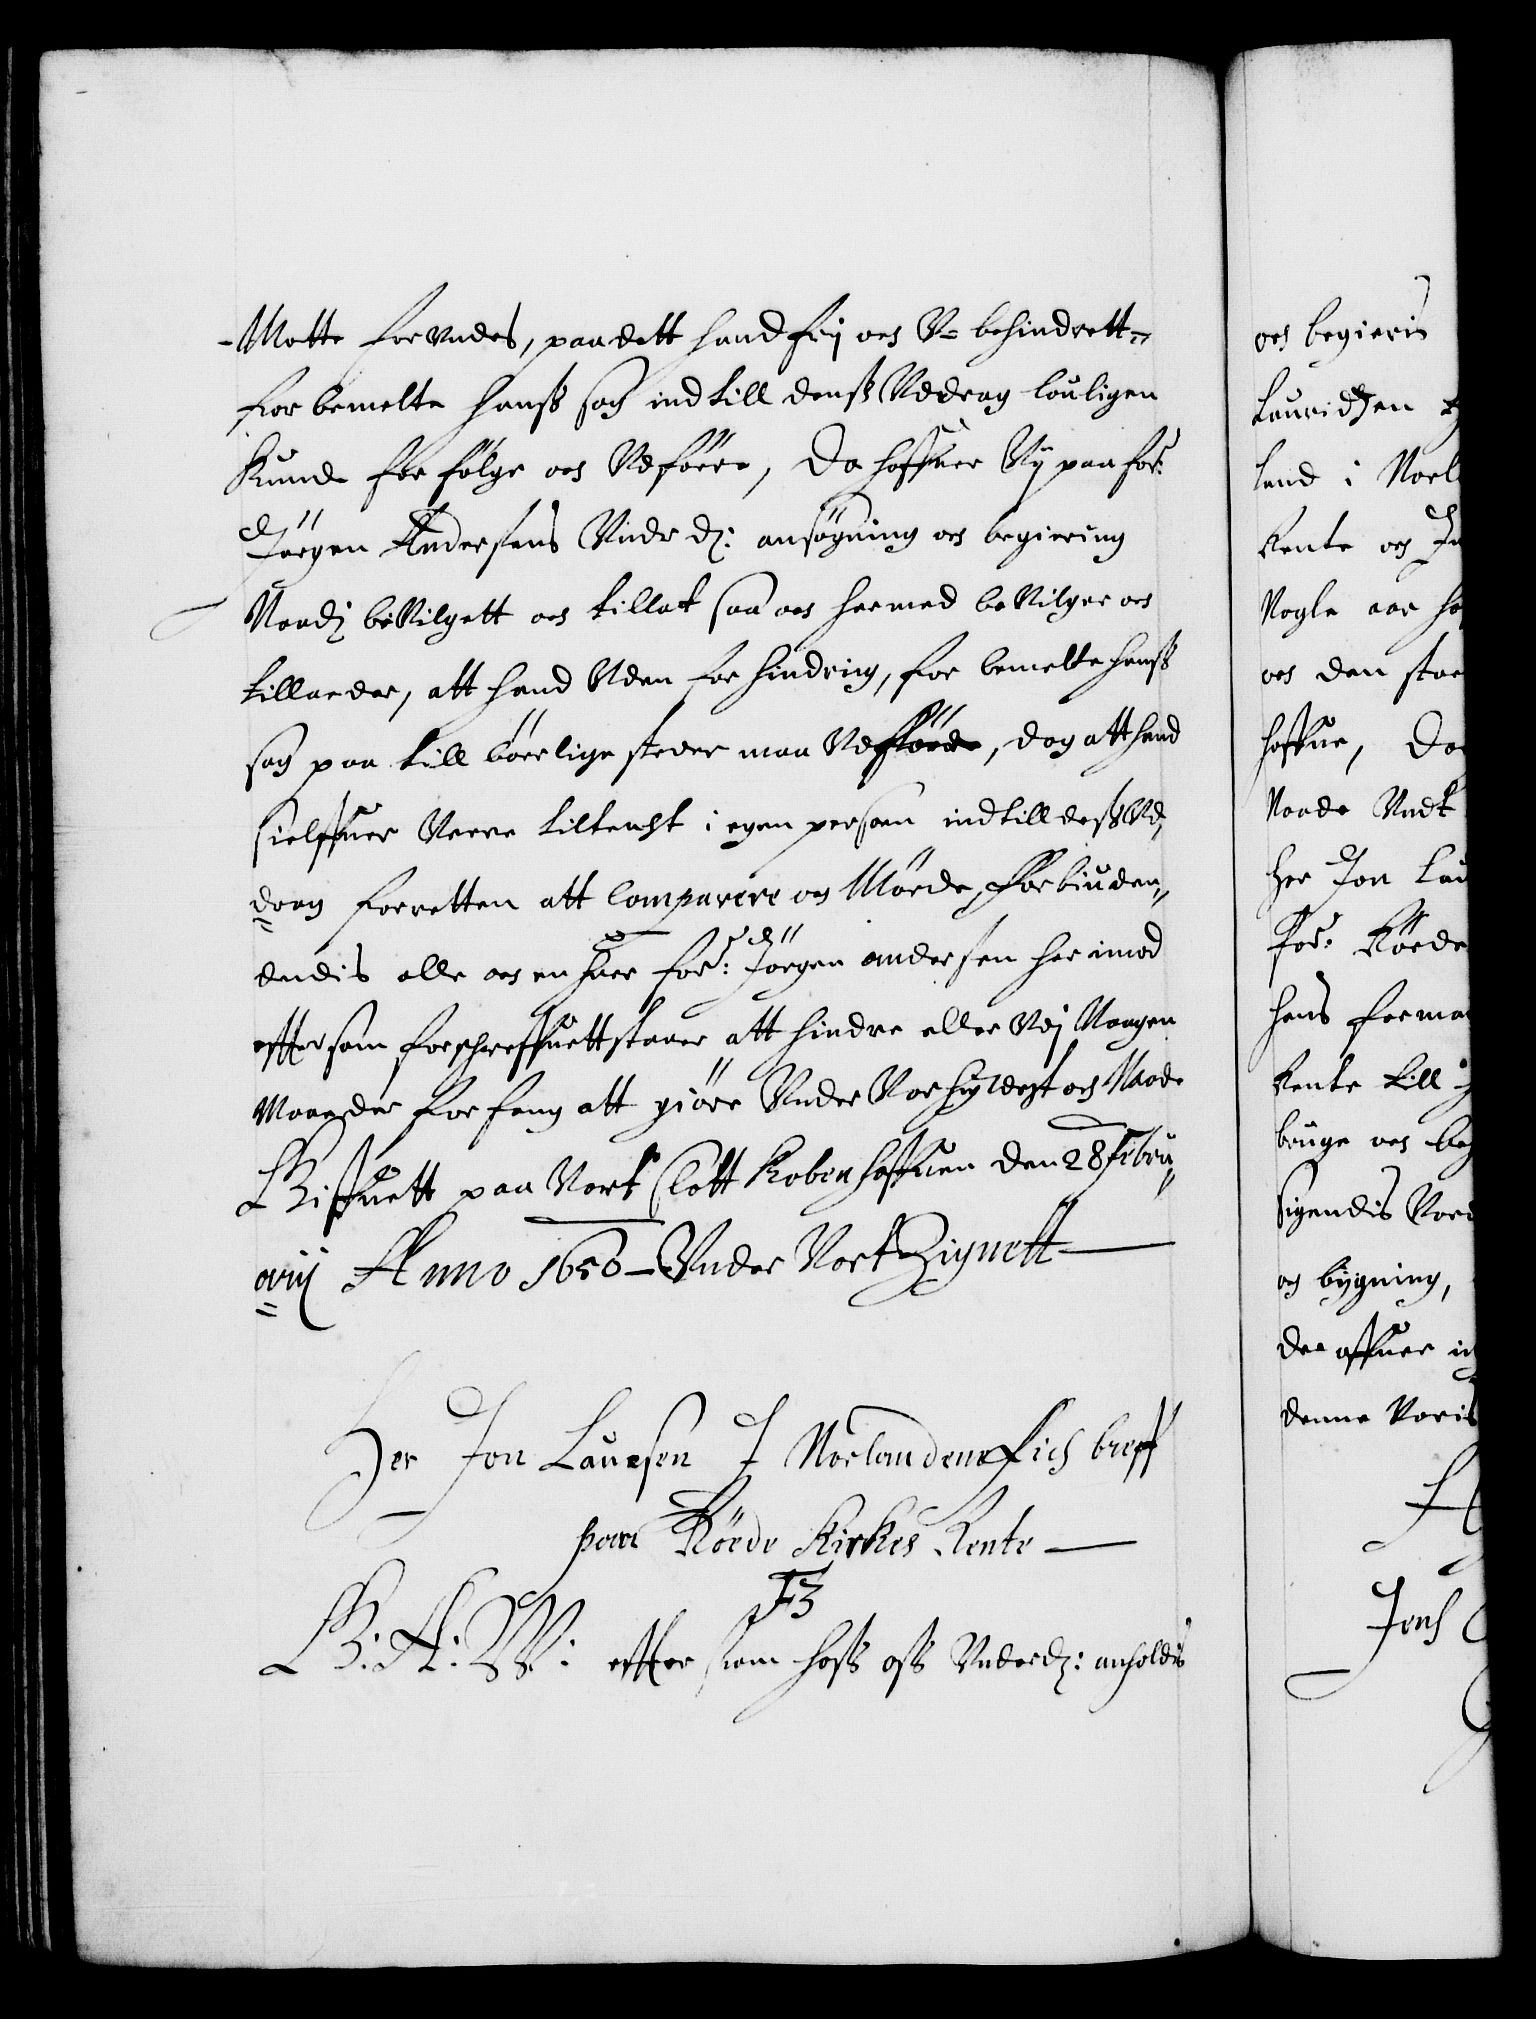 Motte forundes, paa dett hand frij och V-behindrett
for bemelte hanss sag indtill denss Uddrag louligen
Kunde forfølge och Udføre, Da haffuer Vij paa for:
Jørgen Andersens Underd: ansøgning och begiering
Naadj beVilgett och tillat saa och hermed beVilger och
tillader, att hand Uden forhindring, for bemelte hanss
sag paa tillbørlige steder maa Udføre, dog att hand
sielffuer Verre tiltencht i egen person indtill dess Ud,,
drag forretten att Comparere og Møede, Forbiuden,,
dendis alle och en huer for: Jørgen andersen her imod
effter som forschreffuett staaer att hindre eller Udj Naagen
Maader forfang att giøre Under Vor hyldest och Naade
Giffuett paa Vort Slott Kobenhaffuen den 28 Febru,,
arij Anno 1650 – Under Vort Zignett
Her Jon Laursen I Norlandene Fich breff
paa Røede Kirkes Rente
F3
G: A: W: effter som hoss oss Underd: anholdis
och begieris
Lauridzen
land i Norl
Rente och
Nogle aar
och den stoer
haffue, Da
Naade Undt
Her Jon Lau
for: Røede
hans forma
Rente till
bruge och
sigendis
og bygning,
der offuer
denne Voris
Jens